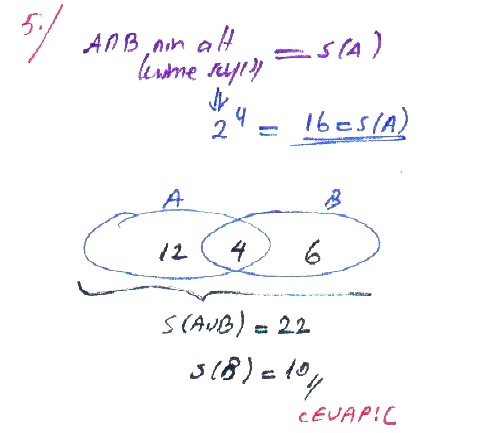 5./
A∩B nin alt = S(A)
küme sayısı
⇓
2⁴ = 16 = S(A)
A B
12 4 6
S(A∪B) = 22
S(B) = 10//
CEVAP: C